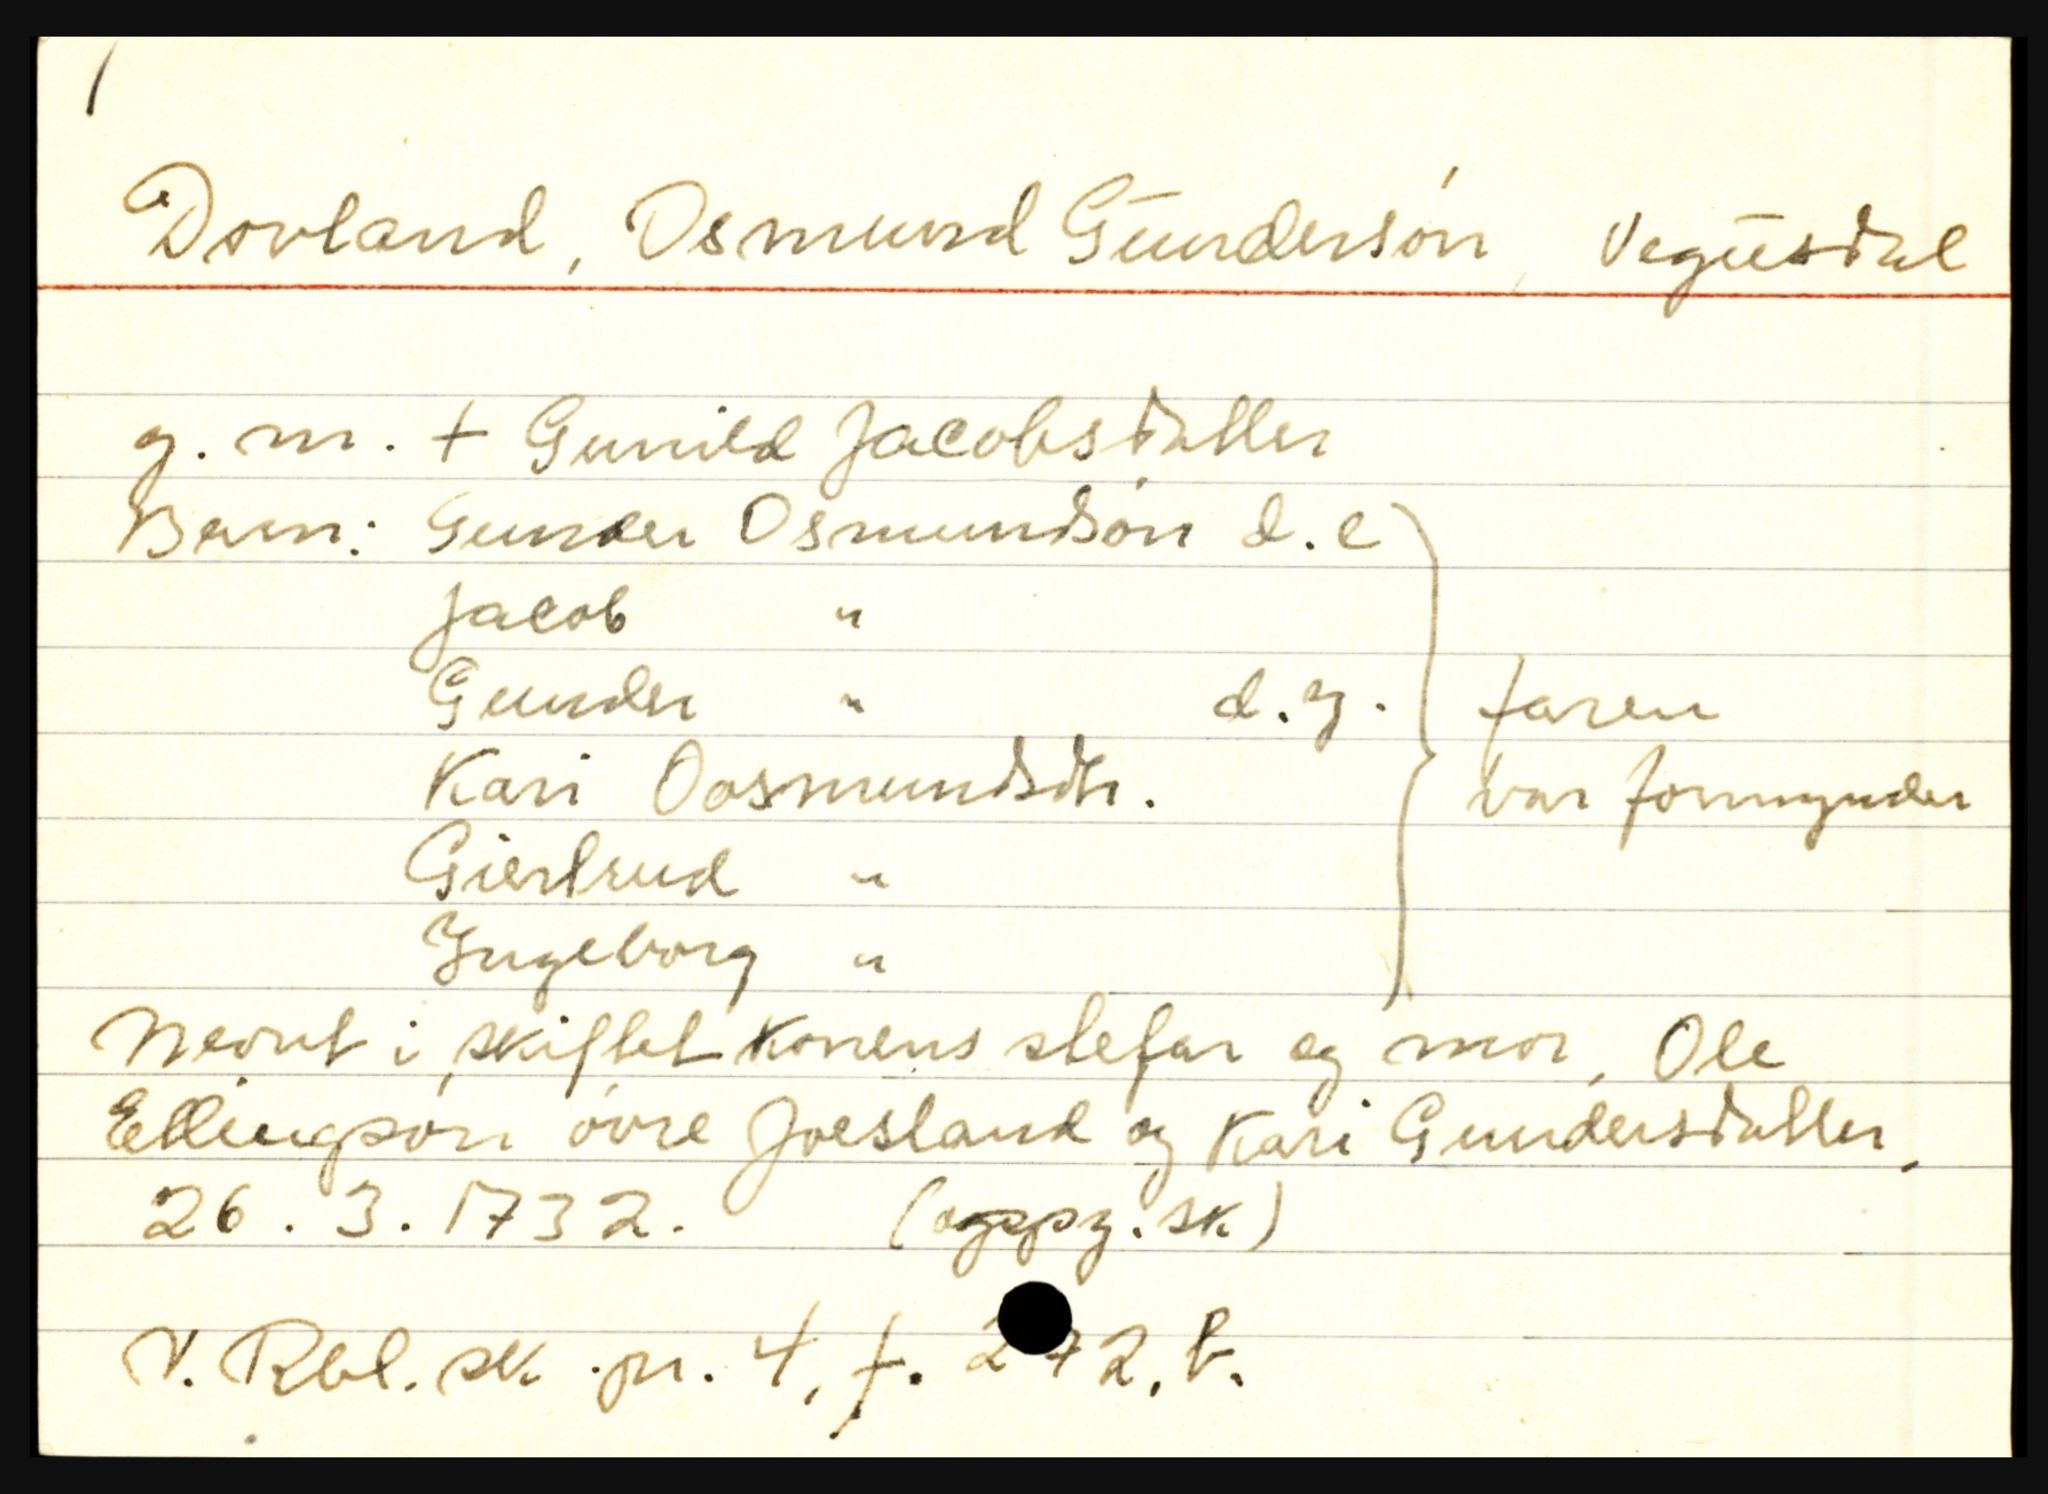 Dovland, Osmund Gundersøn, Vegusdal
g. m. + Gunild Jacobsdatter
Barn: Gunder Osmundsøn d. e
Jacob "
Gunder " d. y.
Kari Oosmundsdtr.
Giertrud "
Ingeborg "
faren
var formynder
Nevnt i skiftet konens stefar og mor, Ole
Ellingsøn øvre Joesland og Kari Gundersdatter.
26. 3. 1732. (oppg. sk)
V. Rbl. sk. pr. 4, f. 272, b.